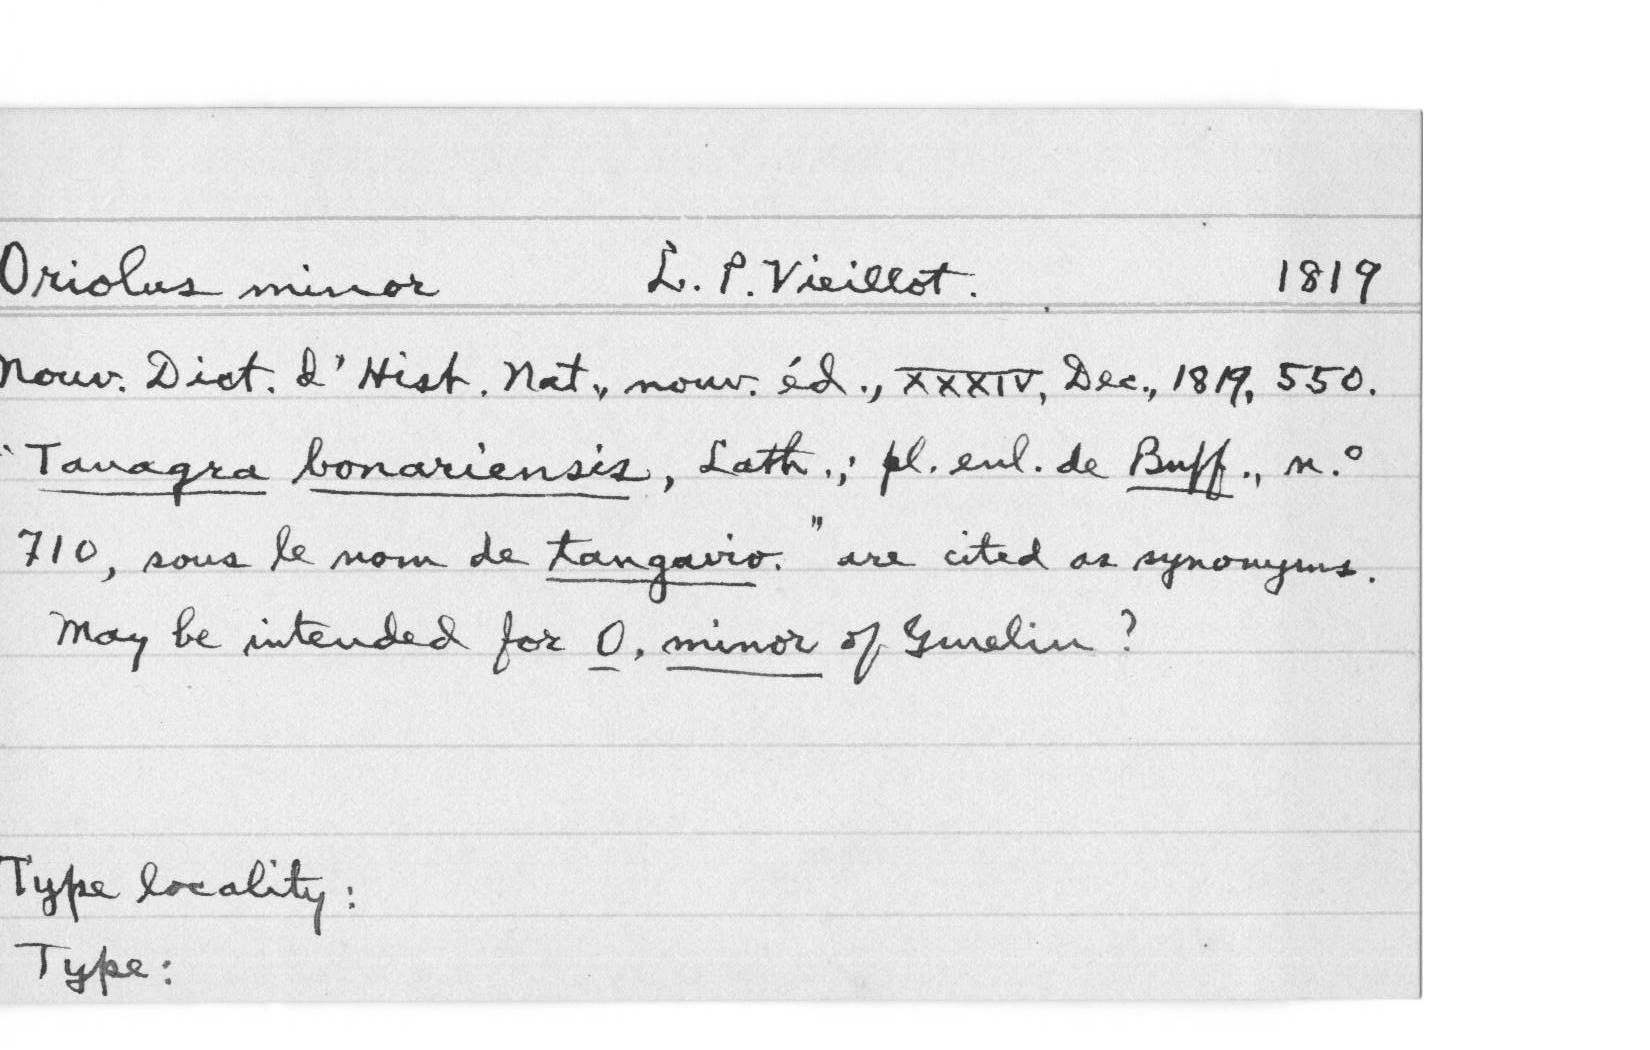 Oriolus minor L. P. Vieillot. 1819
Nouv. Dict. d' Hist. Nat., nouv. éd., XXXIV, Dec., 1819, 550.
"Tanagra bonariensis, Lath.; pl. enl. de Buff., n.°
710, sous le nom de tangavio." are cited as synonyms.
May be intended for O. minor of Gmelin?
Type locality:
Type: